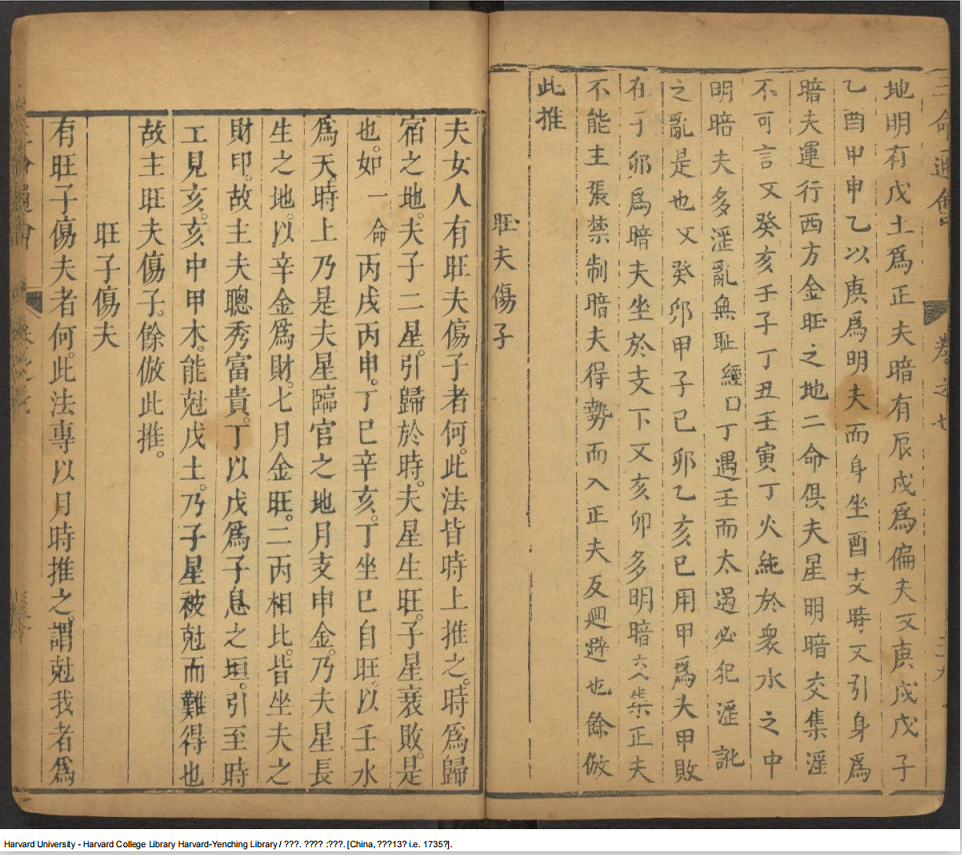 三命通會
卷之七
三十九
地明有戊土爲正夫暗有辰戌爲偏夫又庚戌戊子
乙酉甲申乙以庚爲明夫而身坐酉支時又引身爲
暗夫運行西方金旺之地二命俱夫星明暗交集滛
不可言又癸亥壬子丁丑壬寅丁火純於衆水之中
明暗夫多滛亂無耻經曰丁遇壬而太過必犯滛訛
之亂是也又癸卯甲子己卯乙亥己用甲爲夫甲敗
在子卯爲暗夫坐於支下又亥卯多明暗交集正夫
不能主張禁制暗夫得勢而入正夫反迴避也餘倣
此推
旺夫傷子
夫女人有旺夫傷子者何。此法皆時上推之。時爲歸
宿之地。夫子二星。引歸於時。夫星生旺。子星衰敗。是
也。如一命丙戌丙申。丁巳辛亥。丁坐巳自旺。以壬水
爲夫。時上乃是夫星臨官之地月支申金。乃夫星長
生之地。以辛金爲財。七月金旺。二丙相比。皆坐夫之
財印。故主夫聰秀。富貴。丁以戊爲子息之垣。引至時
上見亥。亥中甲木。能尅戊土。乃子星被尅而難得也
故主旺夫傷子。餘倣此推。
旺子傷夫
有旺子傷夫者何。此法專以月時推之。謂尅我者爲
Harvard University - Harvard College Library Harvard-Yenching Library / ???. ???? :???. [China, ???13? i.e. 1735?].